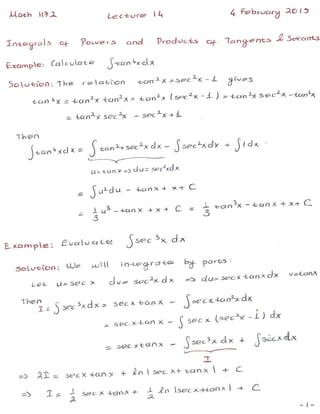 Math 1172 Lecture 14 4 February 2019
Integrals of Powers and Products of Tangents & Secants
Example: Calculate ∫tan⁴x dx
Solution: The relation tan²x = sec²x - 1 gives
tan⁴x = tan²x tan²x = tan²x (sec²x - 1) = tan²x sec²x - tan²x
= tan²x sec²x - sec²x + 1
Then
∫tan⁴x dx = ∫tan²x sec²x dx - ∫sec²x dx + ∫1 dx
u = tan x => du = sec²x dx
= ∫u² du - tan x + x + C
= 1/3 u³ - tan x + x + C = 1/3 tan³x - tan x + x + C
Example: Evaluate ∫sec³x dx
Solution: We will integrate by parts:
Let u = sec x dv = sec²x dx => du = sec x tan x dx v = tan x
Then I = ∫sec³x dx = sec x tan x - ∫sec x tan²x dx
= sec x tan x - ∫sec x (sec²x - 1) dx
= sec x tan x - ∫sec³x dx + ∫sec x dx
I
=> 2I = sec x tan x + ln|sec x + tan x| + C
=> I = 1/2 sec x tan x + 1/2 ln|sec x + tan x| + C
-1-